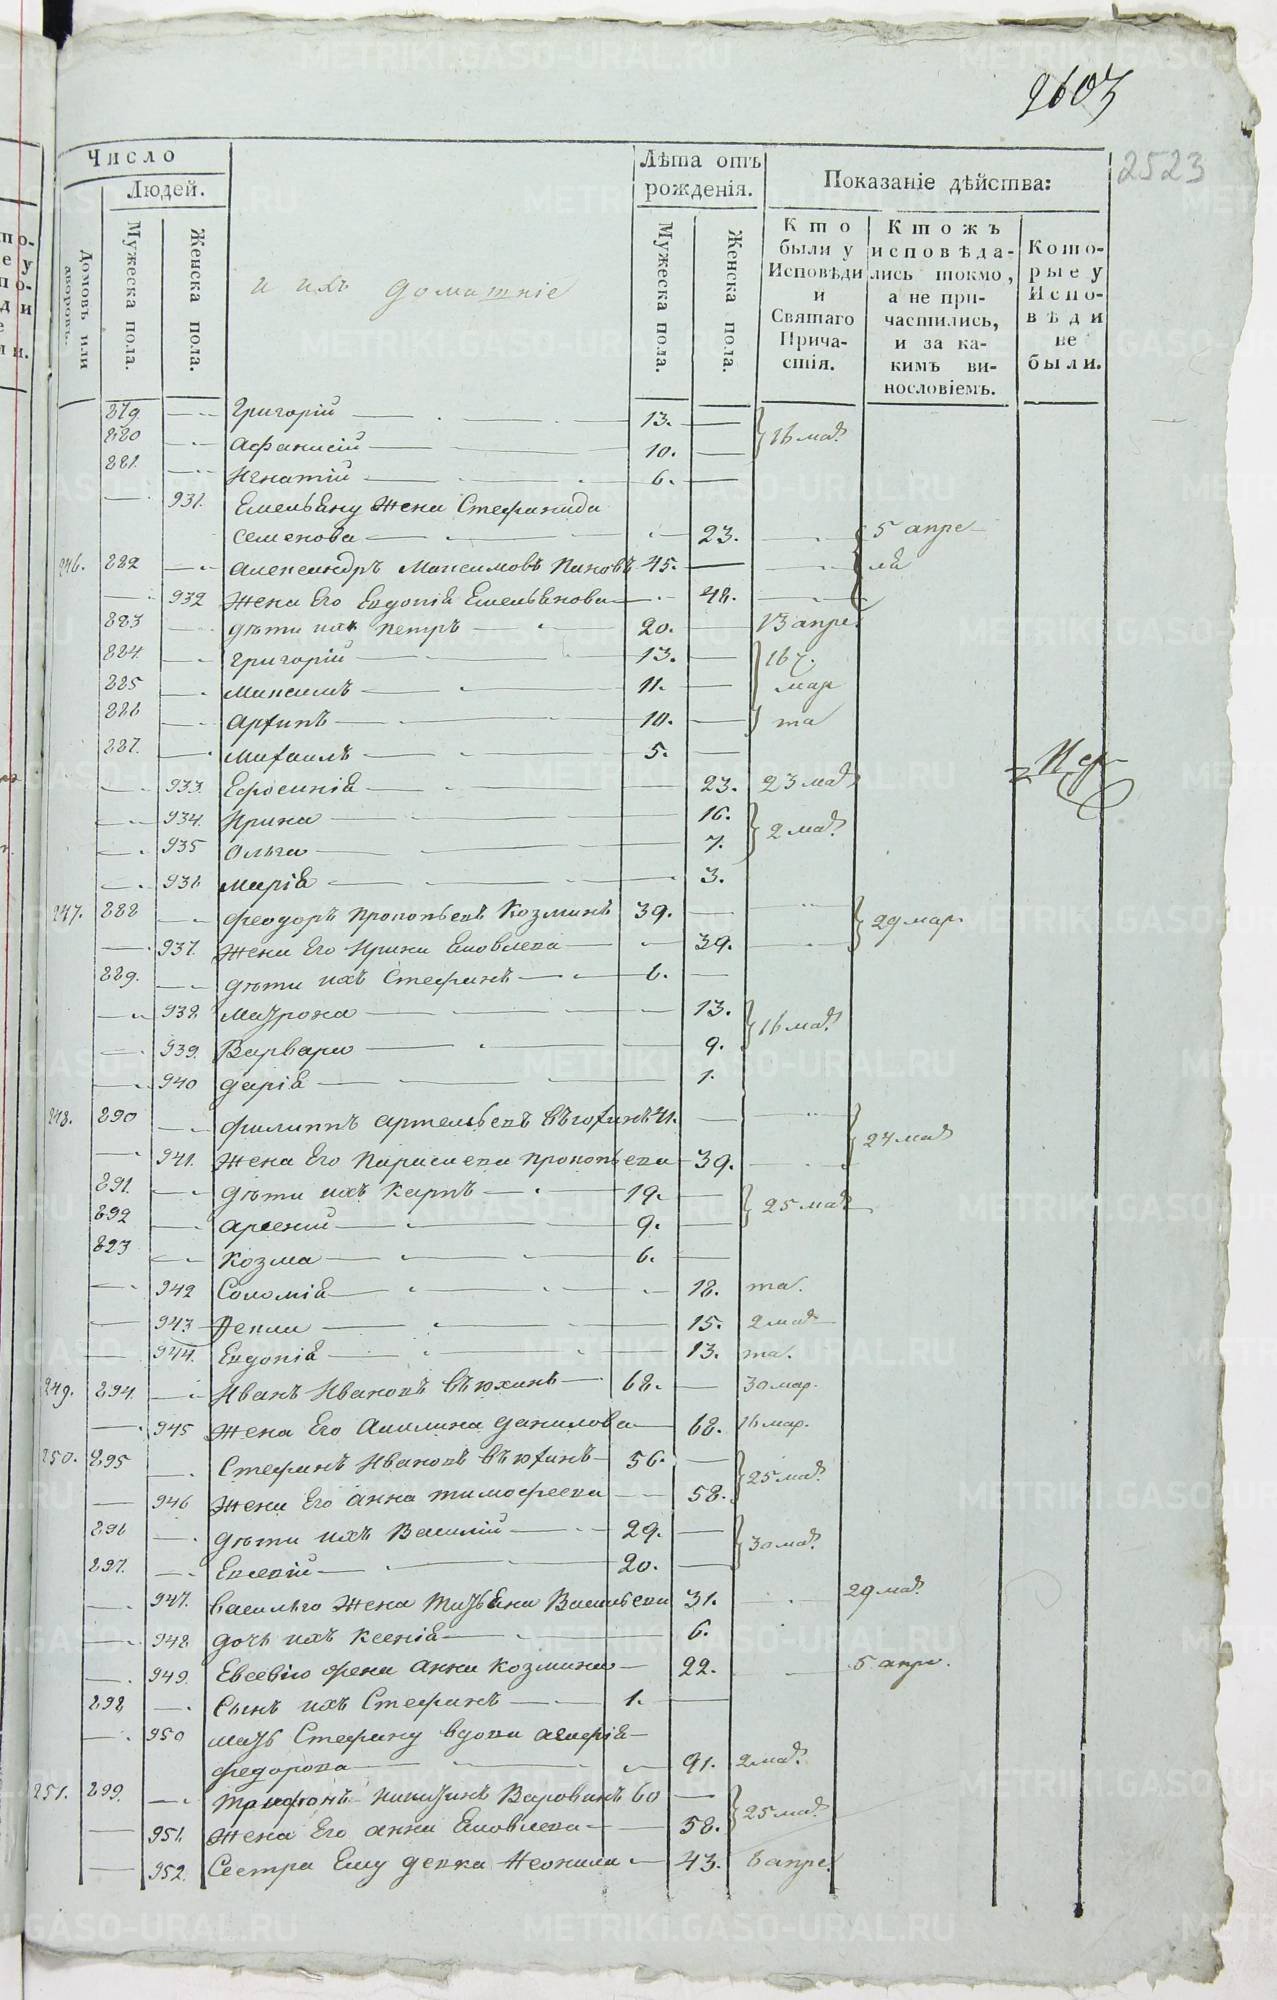 2603
2523
Число
Людей.
Домовъ или дворовъ.
Мужеска пола.
Женска пола.
и ихъ домашніе
Лѣта отъ рожденія.
Мужеска пола.
Женска пола.
Показаніе дѣйства:
Кто были у Исповѣди и Святаго Причастія.
Ктожъ исповѣдались токмо, а не причастились, и за какимъ винословіемъ.
Которые у Исповѣди не были.
879. Григорій 13.
880 Афанасій 10. 16 мар.
881. Игнатій 6.
931. Емельяну жена Стефанида
Семенова 23. 5 апре
246. 882 Александръ Максимовъ Пановъ 45. ля
932 жена Его Евдокія Емельянова 48.
883 дѣти ихъ Петръ 20. 13 апре.
884. Григорій 13. 16
885 Максимъ 11. мар
886 Архипъ 10. та
887. Михаилъ 5.
933. Ефросинія 23. 23 мар
934. Ирина 16.
935 Ольга 7. 2 мар.
936 Марія 3.
247. 888 Феодоръ Прокопьевъ Козминъ 39.
937. жена Его Ирина Яковлева 39. 29 мар.
889. дѣти ихъ Стефанъ 6.
938. Матрона 13.
939. Варвара 9. 16 мар.
940 Дарія 1.
248. 890 Филиппъ Артемьевъ Вьюхинъ 41.
941. жена Его Парасковa Прокопьева 39. 24 мар
891. дѣти ихъ Карпъ 19.
892 Арсеній 9. 25 мар
893 Козма 6.
942 Соломія 18. та.
943 Текла 15. 2 мар
944. Евдокія 13. та.
249. 894. Иванъ Ивановъ Вьюхинъ 68. 30 мар.
945 жена Его Акилина Данилова 68. 16 мар.
250. 895 Стефанъ Ивановъ Вьюхинъ 56.
946 жена Его Анна Тимофеева 58. 25 мар.
896 дѣти ихъ Василій 29.
897. Евсевій 20. 30 мар.
947. Василью жена Татьяна Васильева 31. 29 мар.
948 дочь ихъ Ксенія 6.
949. Евсевію жена Анна Козмина 22. 5 апре.
898 Сынъ ихъ Стефанъ 1.
950 мать Стефану вдова Агафія
Федорова 91. 2 мар.
251. 899. Никитинъ 60
951. жена Его Анна Яковлева 58. 25 мар.
952. Сестра Ему девка Неонила 43. 6 апре.
METRIKI.GASO-URAL.RU